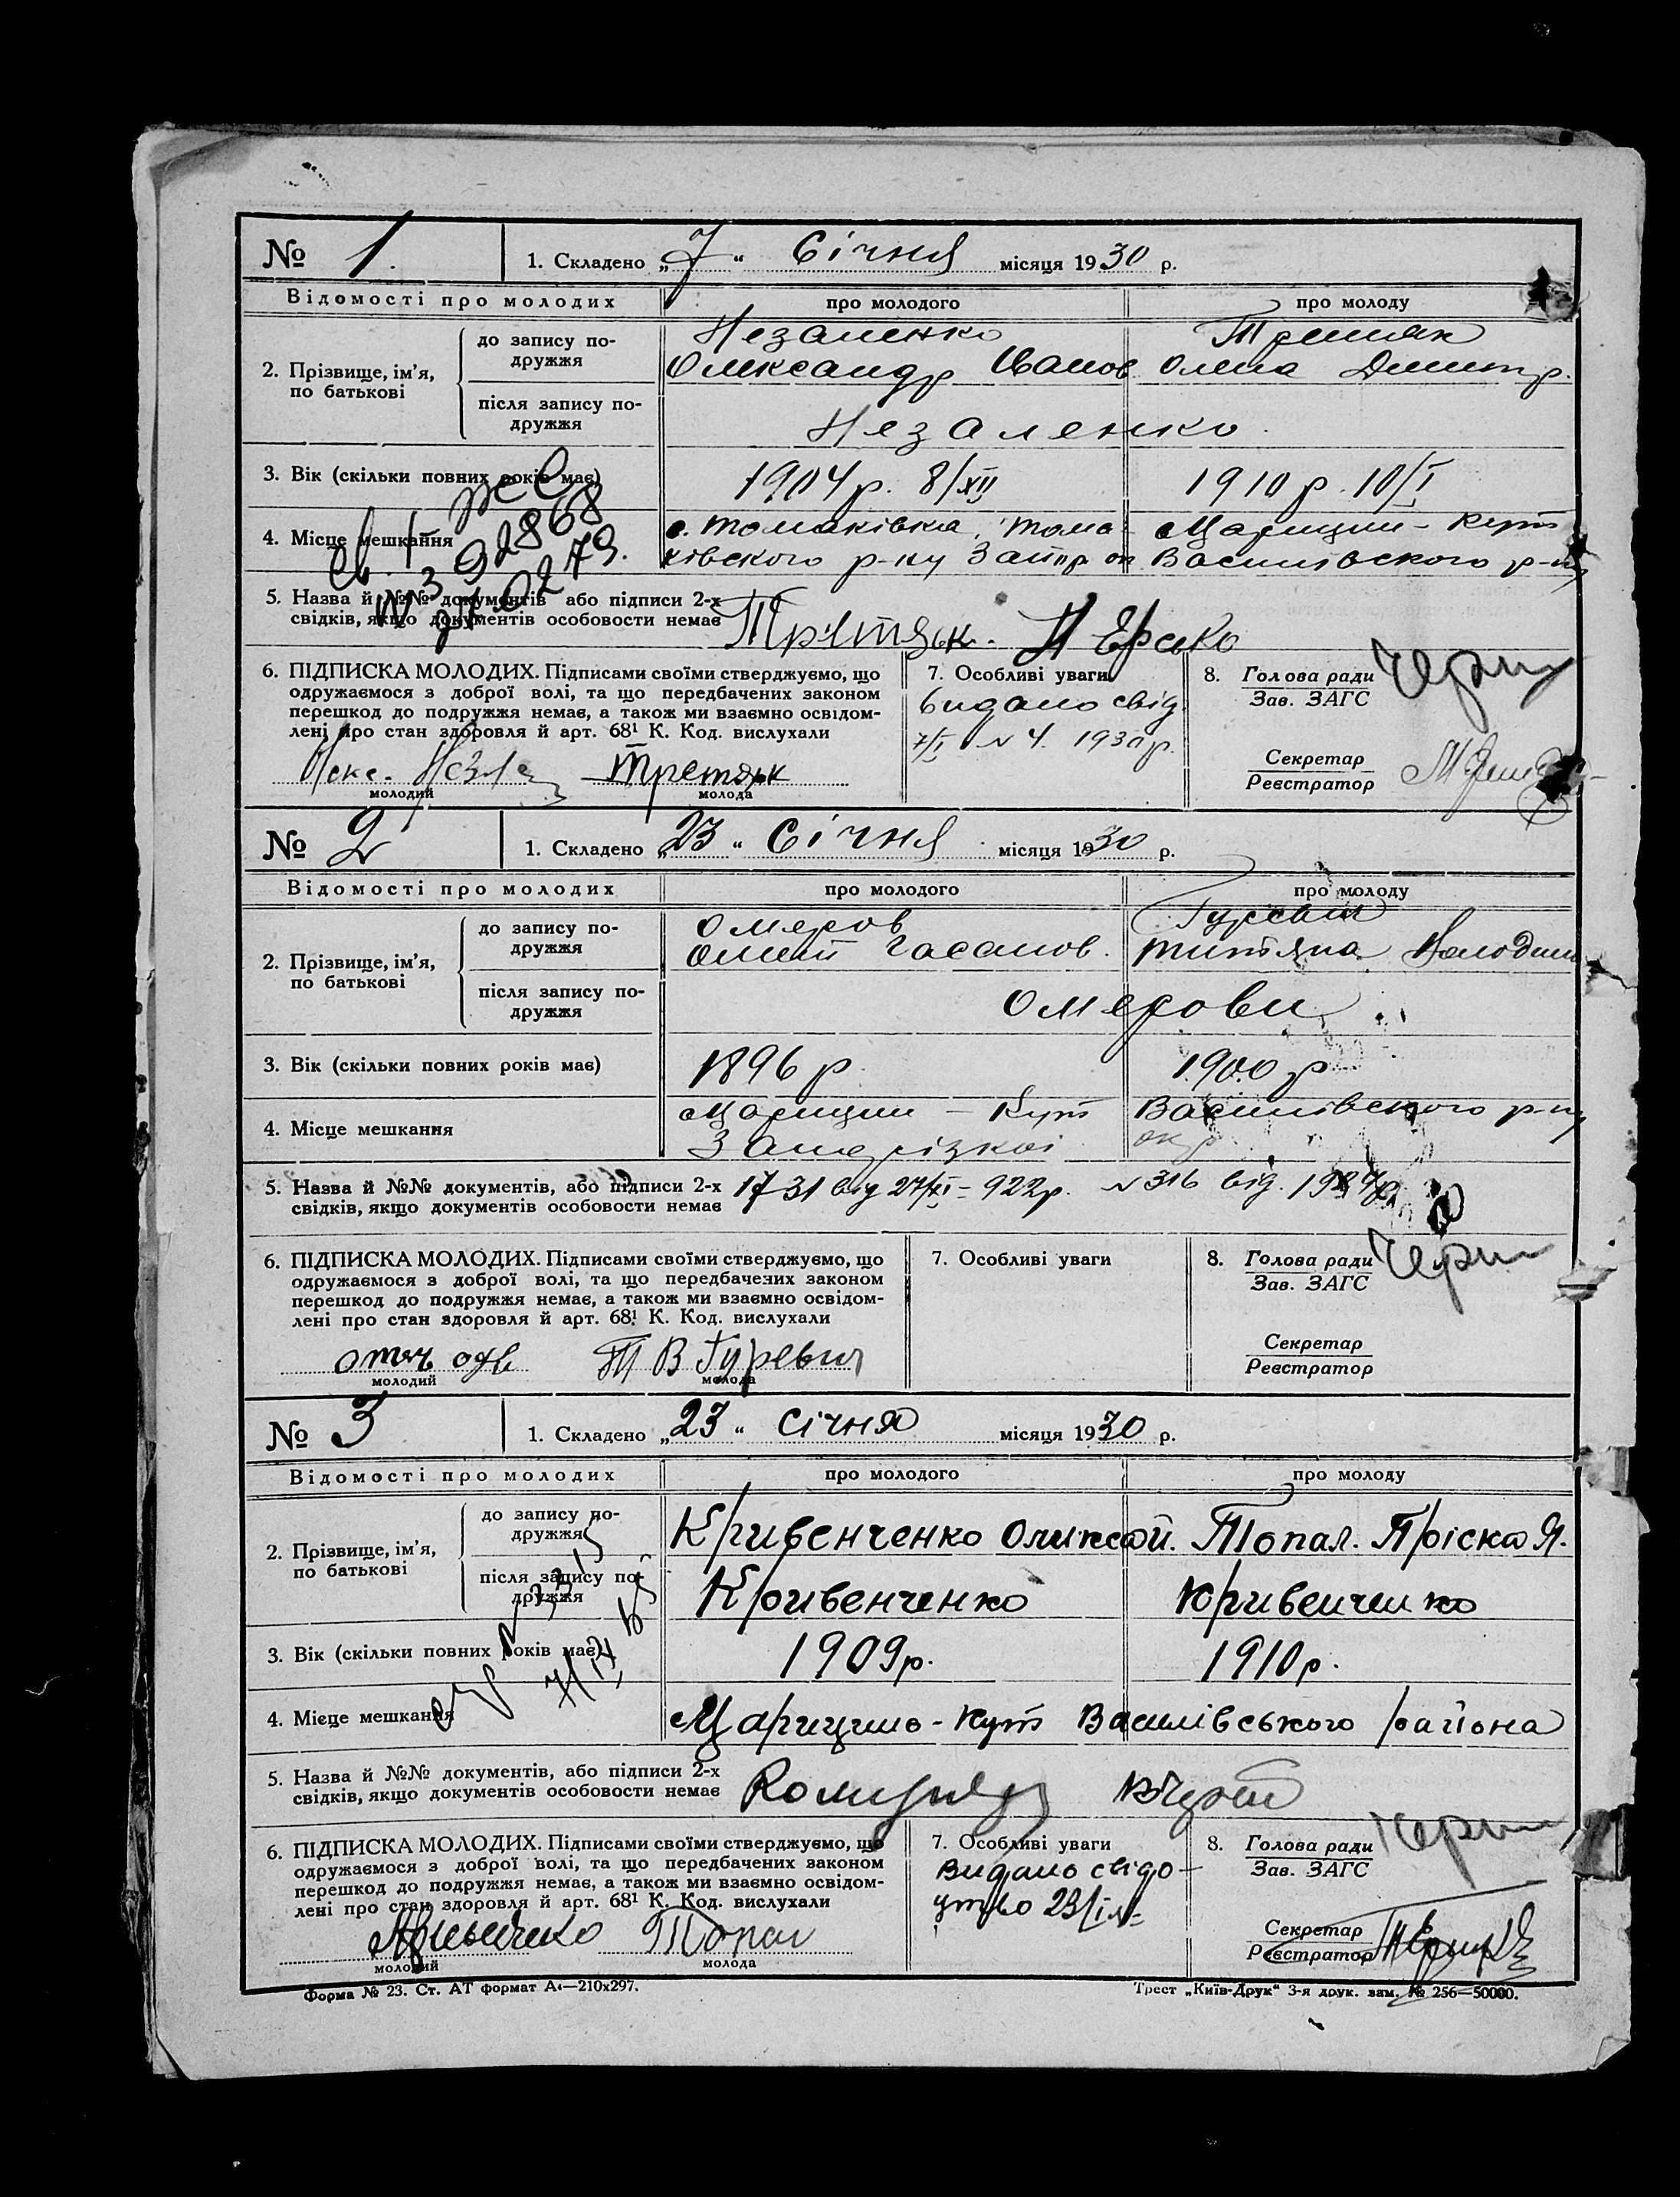 № 1. 1. Складено „7“ Січня місяця 1930 р.
Відомості про молодих про молодого про молоду
2. Прізвище, ім’я, по батькові
до запису подружжя
Незаленко Третяк
Олександр Іванов Олена Дмитр.
після запису подружжя
Незаленко
3. Вік (скільки повних років має) 1904 р. 8/XII 1910 р. 10/I
4. Місце мешкання
с. Томаківка, Тома Царицин - Кут
ківского р-ну Запор. ок Василівского р-ну
5. Назва й №№ документів або підписи 2-х
свідків, якщо документів особовости немає Третяк.
6. ПІДПИСКА МОЛОДИХ. Підписами своїми стверджуємо, що
одружаємося з доброї волі, та що передбачених законом
перешкод до подружжя немає, а також ми взаємно освідом-
лені про стан здоровля й арт. 68¹ К. Код. вислухали
Третяк
молодий молода
7. Особливі уваги
Видано свід.
7/I № 4. 1930 р.
8. Голова ради
Зав. ЗАГС
Секретар
Реєстратор
№ 2 1. Складено „23“ Січня місяця 1930 р.
Відомості про молодих про молодого про молоду
2. Прізвище, ім’я, по батькові
до запису подружжя
Омеров Гуревич
Гасанов. Володим
після запису подружжя
Омерови
3. Вік (скільки повних років має) 1896 р 1900 р
4. Місце мешкання
Царицин - Кут Василівского р-ну
Запорізкої окр
5. Назва й №№ документів, або підписи 2-х 1731 від 27/XI - 922р. № 316 від.
свідків, якщо документів особовости немає
6. ПІДПИСКА МОЛОДИХ. Підписами своїми стверджуємо, що
одружаємося з доброї волі, та що передбачених законом
перешкод до подружжя немає, а також ми взаємно освідом-
лені про стан здоровля й арт. 68¹ К. Код. вислухали
Т В Гуревич
молодий молода
7. Особливі уваги
8. Голова ради
Зав. ЗАГС
Секретар
Реєстратор
№ 3 1. Складено „23“ Січня місяця 1930 р.
Відомості про молодих про молодого про молоду
2. Прізвище, ім’я, по батькові
до запису подружжя
Кривенченко Оликсій. Топал. Пріска Я.
після запису подружжя
Кривенченко Кривенченко
3. Вік (скільки повних років має) 1909р. 1910р.
4. Місце мешкання Царицино - Кут Василівського района
5. Назва й №№ документів, або підписи 2-х
свідків, якщо документів особовости немає
6. ПІДПИСКА МОЛОДИХ. Підписами своїми стверджуємо, що
одружаємося з доброї волі, та що передбачених законом
перешкод до подружжя немає, а також ми взаємно освідом-
лені про стан здоровля й арт. 68¹ К. Код. вислухали
Топал
молодий молода
7. Особливі уваги
Видано свідо-
цтво 23/I
8. Голова ради
Зав. ЗАГС
Секретар
Реєстратор
Форма № 23. Ст. АТ формат А₄—210х297. Трест „Київ-Друк“ 3-я друк. зам. № 256—50000.